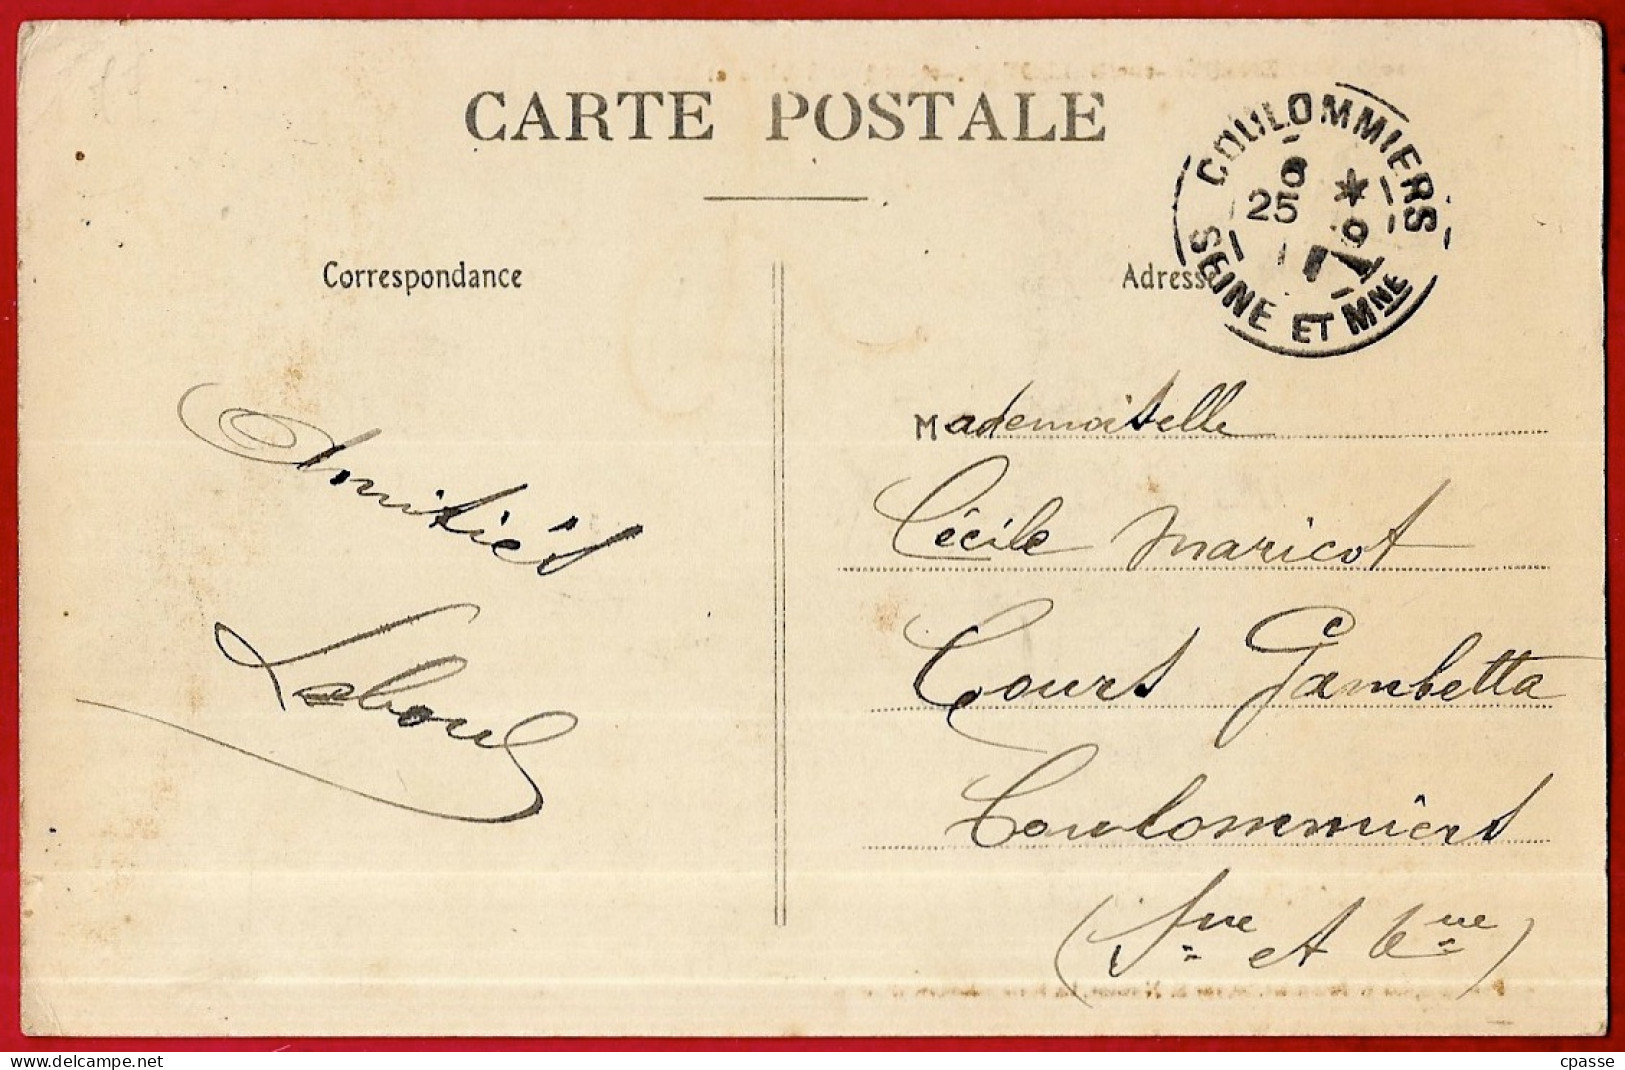 CARTE POSTALE
COULOMMIERS
6 *
25
SEINE ET MNE
Correspondance
Adresse
Mademoiselle
Cécile Maricot
Cours Gambetta
Coulommiers
(Sne et Mne)
Amitiés
cpasse